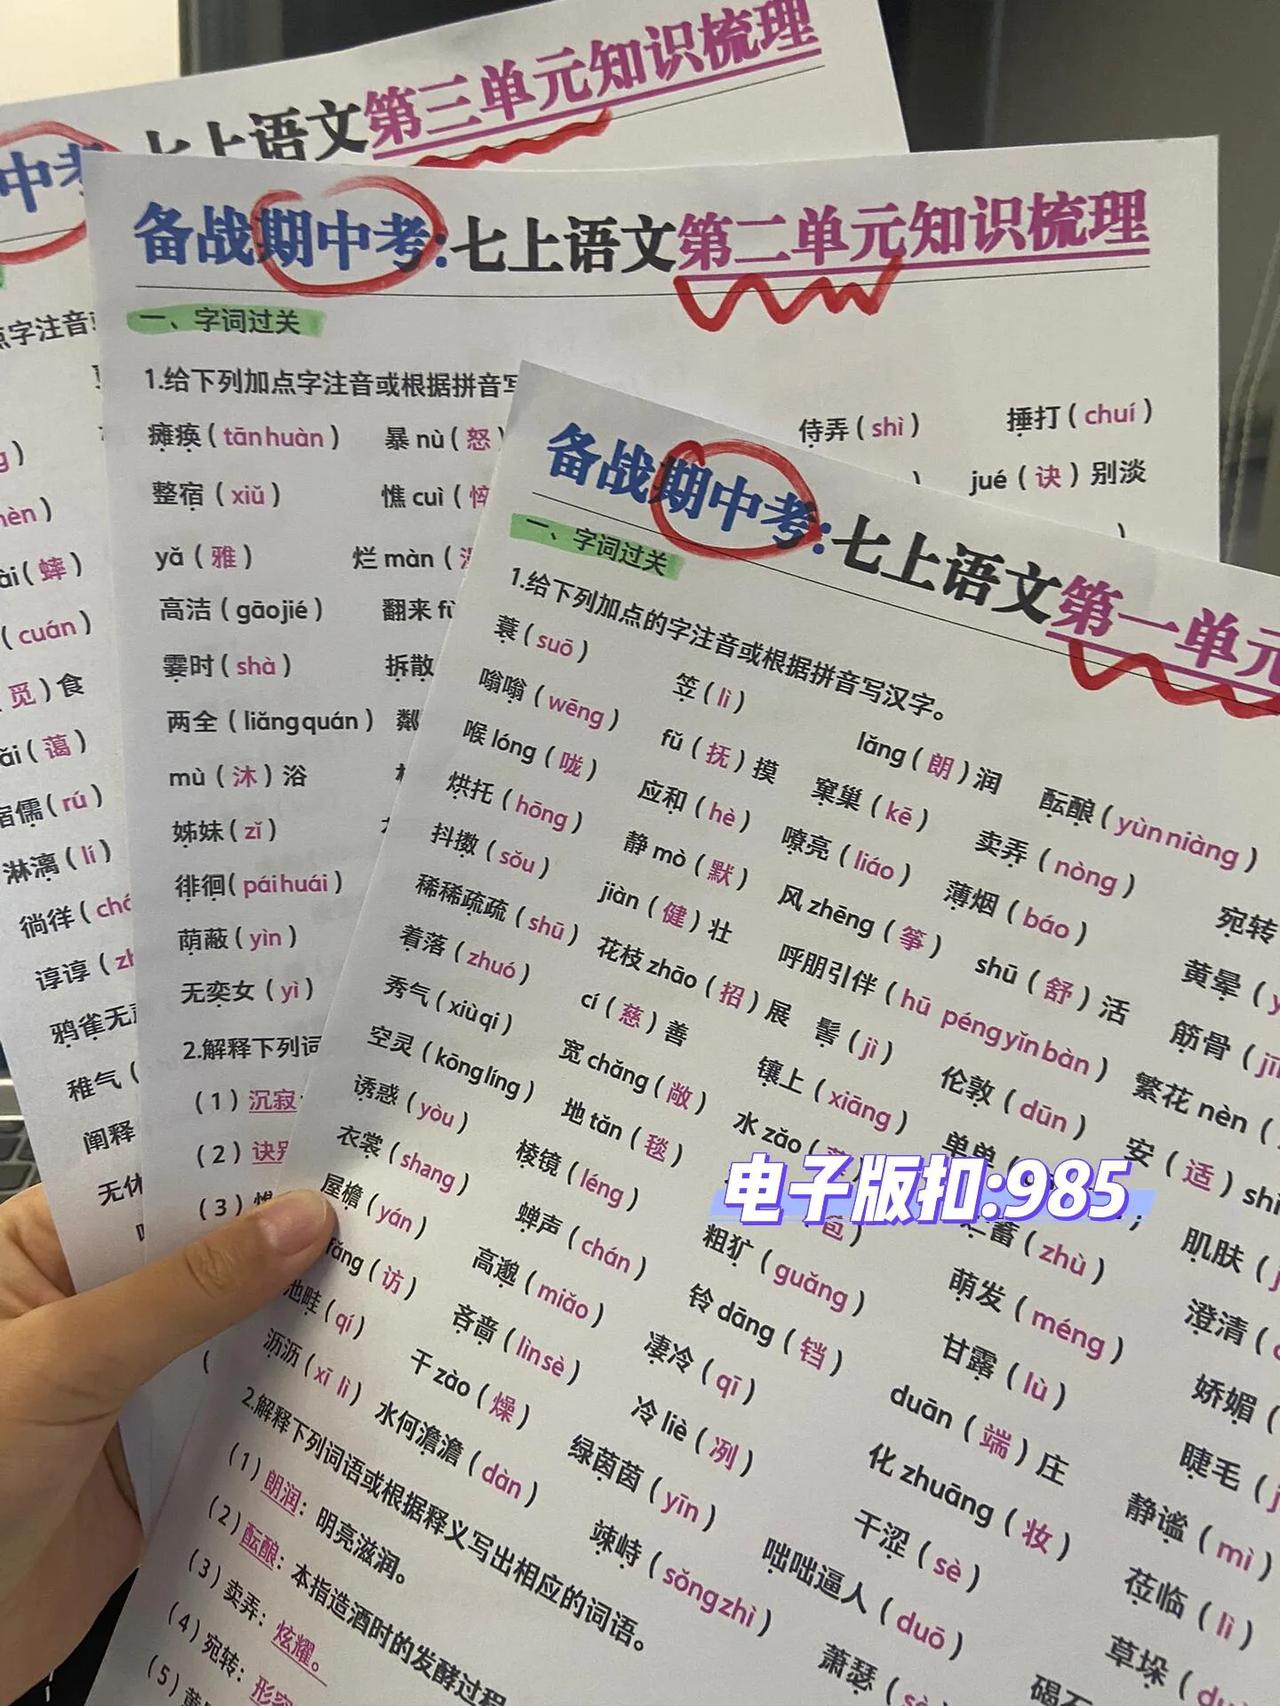 七上语文第三单元知识梳理
中考
备战期中考:七上语文第二单元知识梳理
一、字词过关
1.给下列加点字注音或根据拼音写
瘫痪(tān huàn) 暴 nù(怒) 侍弄(shì) 捶打(chuí)
整宿(xiǔ) 憔 cuì(悴 jué(诀)别淡
yǎ(雅) 烂 màn(
高洁(gāo jié) 翻来 fù
霎时(shà) 拆散
两全(liǎng quán) 粼
mù(沐)浴
姊妹(zǐ)
徘徊(pái huái)
荫蔽(yìn)
无奕女(yì)
2.解释下列词
(1)沉寂
(2)诀别
(3)憔
点字注音或
(蟀)
(cuán)
觅)食
ǎi(蔼)
儒(rú)
淋漓(lí)
徜徉(chá
谆谆(zh
鸦雀无
稚气(
阐释
无休
备战期中考:七上语文第一单元
一、字词过关
1.给下列加点的字注音或根据拼音写汉字。
蓑(suō) 笠(lì) lǎng(朗)润 酝酿(yùn niàng)
嗡嗡(wēng) fǔ(抚)摸 窠巢(kē) 卖弄(nòng) 宛转
喉 lóng(咙) 应和(hè) 嘹亮(liáo) 薄烟(báo) 黄晕(y
烘托(hōng) 静 mò(默) 风 zhēng(筝) shū(舒)活 筋骨(jī
抖擞(sǒu) jiàn(健)壮 呼朋引伴(hū péng yǐn bàn) 繁花 nèn(
稀稀疏疏(shū) 花枝 zhāo(招)展 髻(jì) 伦敦(dūn) 安(适)shì
着落(zhuó) cí(慈)善 镶上(xiāng) 单单( 肌肤(j
秀气(xiù qi) 宽 chǎng(敞) 水 zǎo( 蓄(zhù) 澄清(
空灵(kōng líng) 地 tǎn(毯) 苞) 萌发(méng) 娇媚(
诱惑(yòu) 棱镜(léng) 粗犷(guǎng) 甘露(lù) 睫毛(j
衣裳(shang) 蝉声(chán) 铃 dāng(铛) duān(端)庄 静谧(mì)
屋檐(yán) 高邈(miǎo) 凄冷(qī) 化 zhuāng(妆) 莅临(lì)
fǎng(访) 吝啬(lìn sè) 冷 liè(冽) 干涩(sè) 草垛(du
池畦(qí) 干 zào(燥) 绿茵茵(yīn) 咄咄逼人(duō) 碣石
沥沥(xī lì) 水何澹澹(dàn) 竦峙(sǒng zhì) 萧瑟(sè
2.解释下列词语或根据释义写出相应的词语。
(1)朗润：明亮滋润。
(2)酝酿：本指造酒时的发酵过程
(3)卖弄：炫耀。
(4)宛转：形容
(5)黄
电子版扣:985